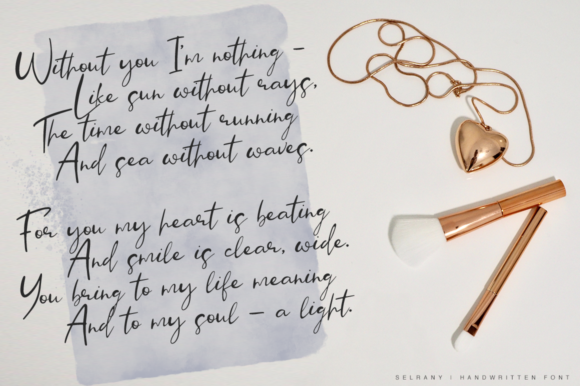 Without you I'm nothing –
Like sun without rays,
The time without running
And sea without waves.
For you my heart is beating
And smile is clear, wide.
You bring to my life meaning
And to my soul – a light.
SELRANY | HANDWRITTEN FONT